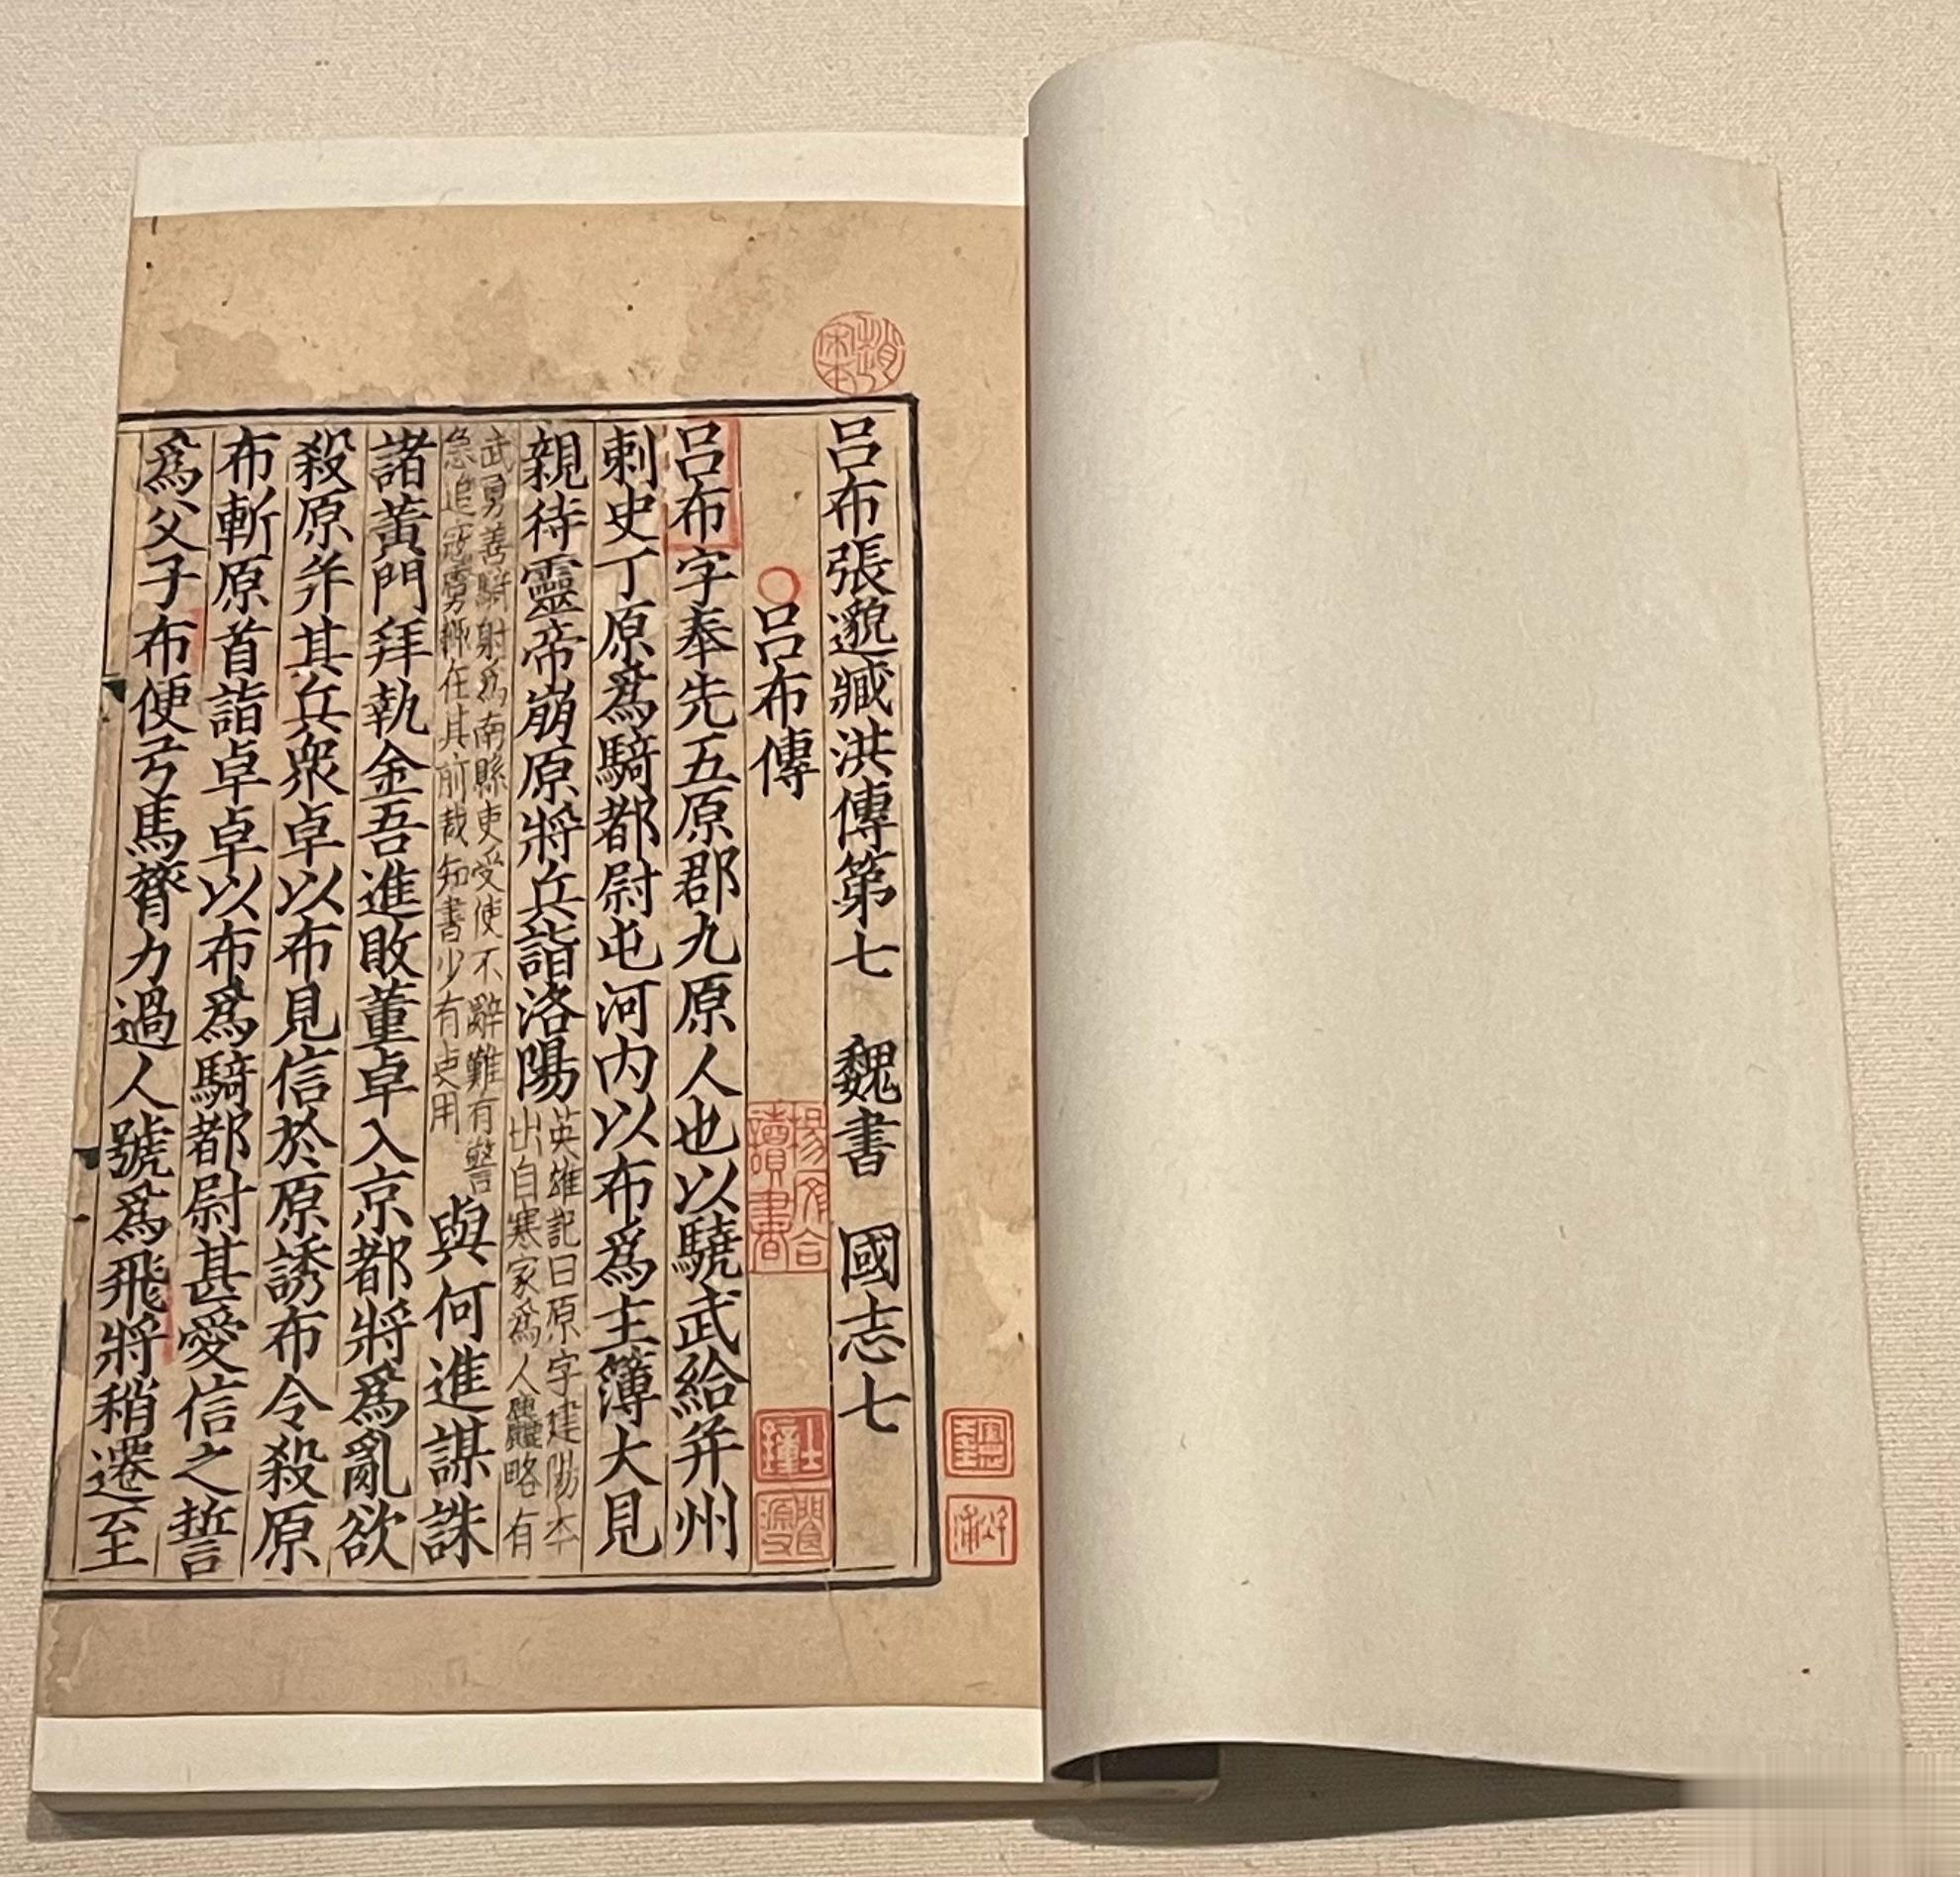 呂布張邈臧洪傳第七　魏書　國志七
呂布傳
呂布字奉先五原郡九原人也以驍武給并州
刺史丁原爲騎都尉屯河内以布爲主簿大見
親待靈帝崩原將兵詣洛陽
英雄記曰原字建陽本
出自寒家爲人麤略有
武勇善騎射爲南縣吏受使不辭難有警
急追寇虜輒在其前裁知書少有吏用
與何進謀誅
諸黃門拜執金吾進敗董卓入京都將爲亂欲
殺原并其兵衆卓以布見信於原誘布令殺原
布斬原首詣卓卓以布爲騎都尉甚愛信之誓
爲父子布便弓馬膂力過人號爲飛將稍遷至
趙宋本
讀書